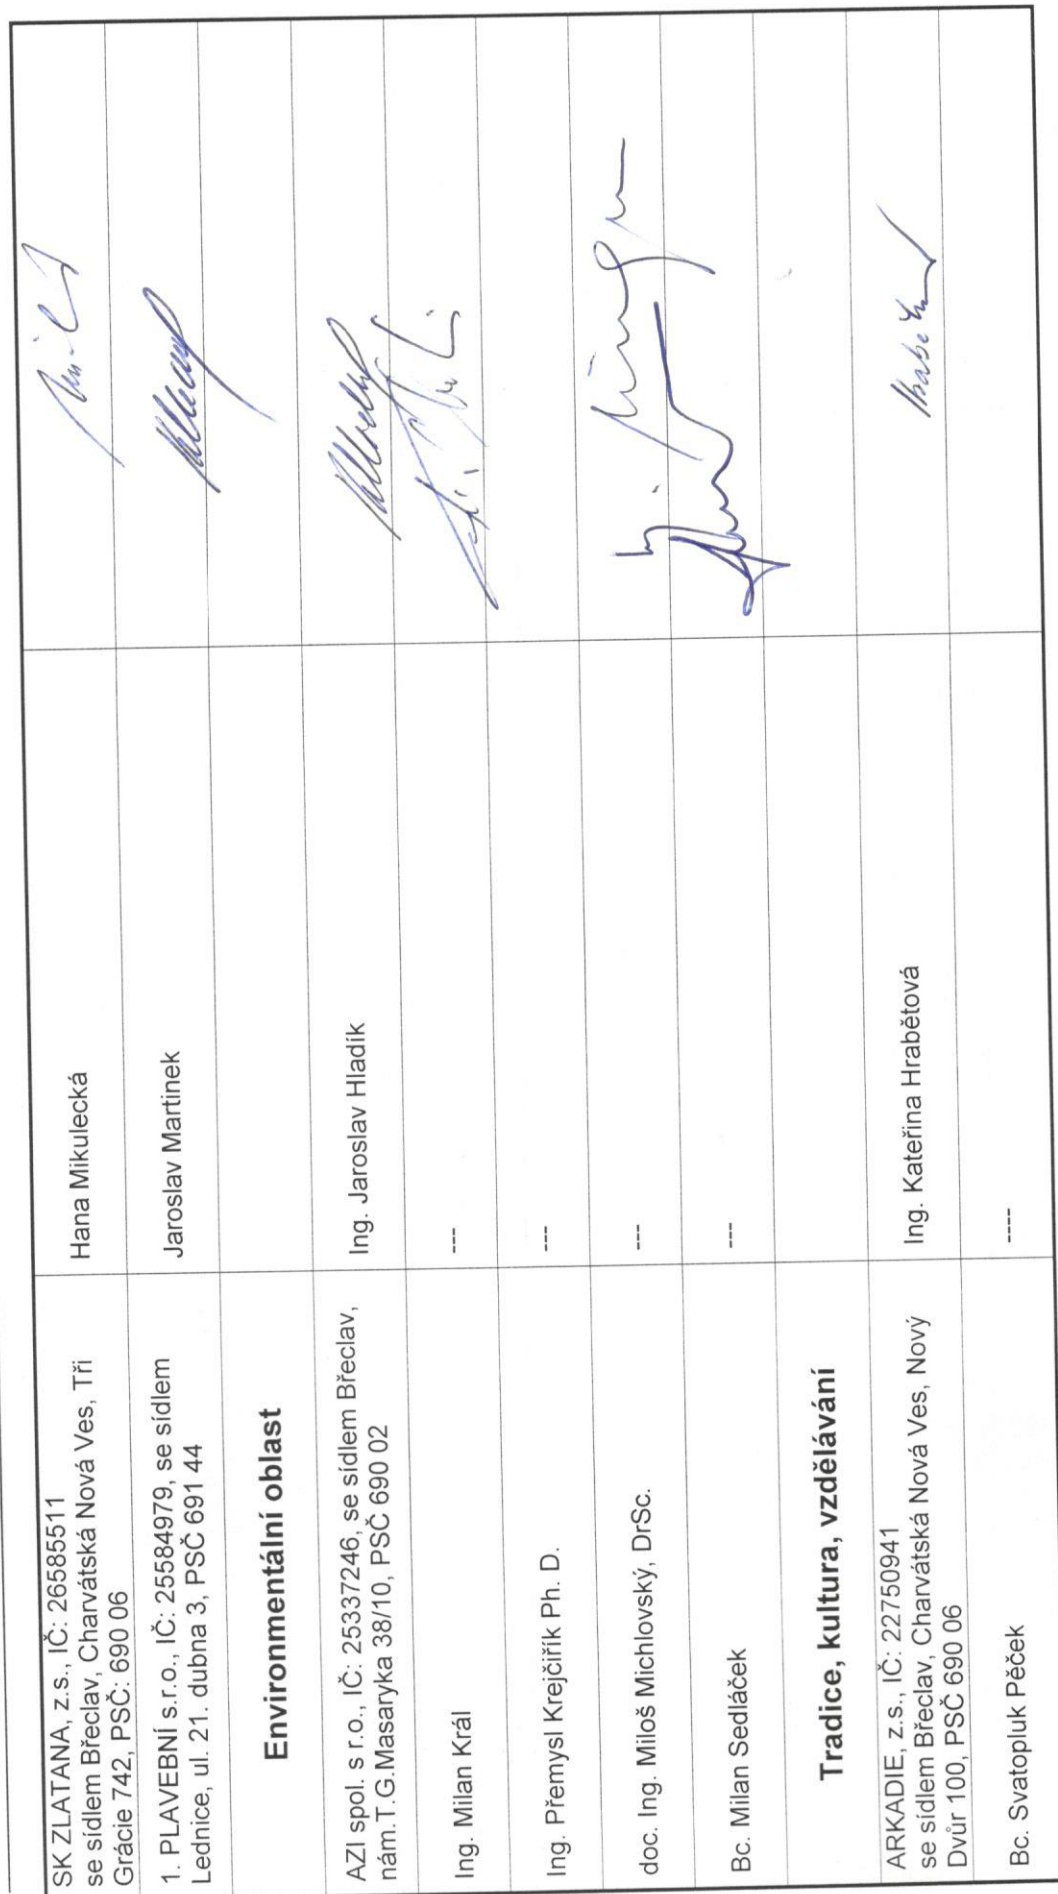 SK ZLATANA, z.s., IČ: 26585511
se sídlem Břeclav, Charvátská Nová Ves, Tři
Grácie 742, PSČ: 690 06
Hana Mikulecká
1. PLAVEBNÍ s.r.o., IČ: 25584979, se sídlem
Lednice, ul. 21. dubna 3, PSČ 691 44
Jaroslav Martinek
Environmentální oblast
AZI spol. s r.o., IČ: 25337246, se sídlem Břeclav,
nám.T.G.Masaryka 38/10, PSČ 690 02
Ing. Jaroslav Hladík
Ing. Milan Král
---
Ing. Přemysl Krejčiřík Ph. D.
---
doc. Ing. Miloš Michlovský, DrSc.
---
Bc. Milan Sedláček
---
Tradice, kultura, vzdělávání
ARKADIE, z.s., IČ: 22750941
se sídlem Břeclav, Charvátská Nová Ves, Nový
Dvůr 100, PSČ 690 06
Ing. Kateřina Hrabětová
Bc. Svatopluk Pěček
----